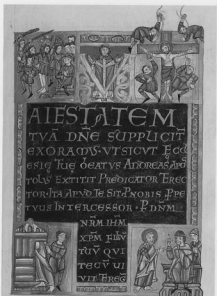 AIESTATEM
TVĀ DNE SUPPLICIT
EXORAMVS·VT SICVT ECCL
ESIE TUE BEATVS ANDREAS APO
TOLVS EXTITIT PREDICATOR ERECT
TOR·ITA APVD TE SIT P NOBIS PPE
TVVS INTERCESSOR·P DNM
NRM IHM
XPM FILIV
TVV QVI
TECV VI
VIT ET REG